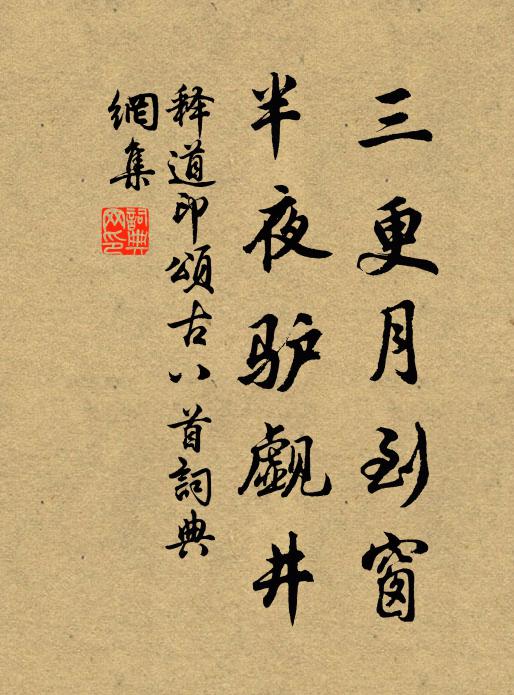 三更月到窗
半夜驴覷井
释道印頌古八首詞典
網集
詞典
网印